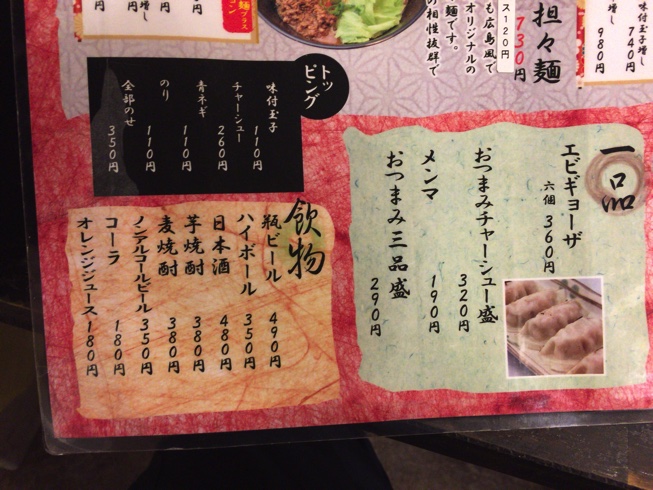 味付玉子増し
740円
増し
980円
担々麺
730円
ス120円
も広島風で
オリジナルの
麺です。
の相性抜群で
麺プラス
増し
円
円
円
トッピング
味付玉子 110円
チャーシュー 260円
青ネギ 110円
のり 110円
全部のせ 350円
一品
エビギョーザ
六個 360円
おつまみチャーシュー盛 320円
メンマ 190円
おつまみ三品盛 290円
飲物
瓶ビール 490円
ハイボール 350円
日本酒 480円
芋焼酎 380円
麦焼酎 380円
ノンアルコールビール 350円
コーラ 180円
オレンジジュース 180円